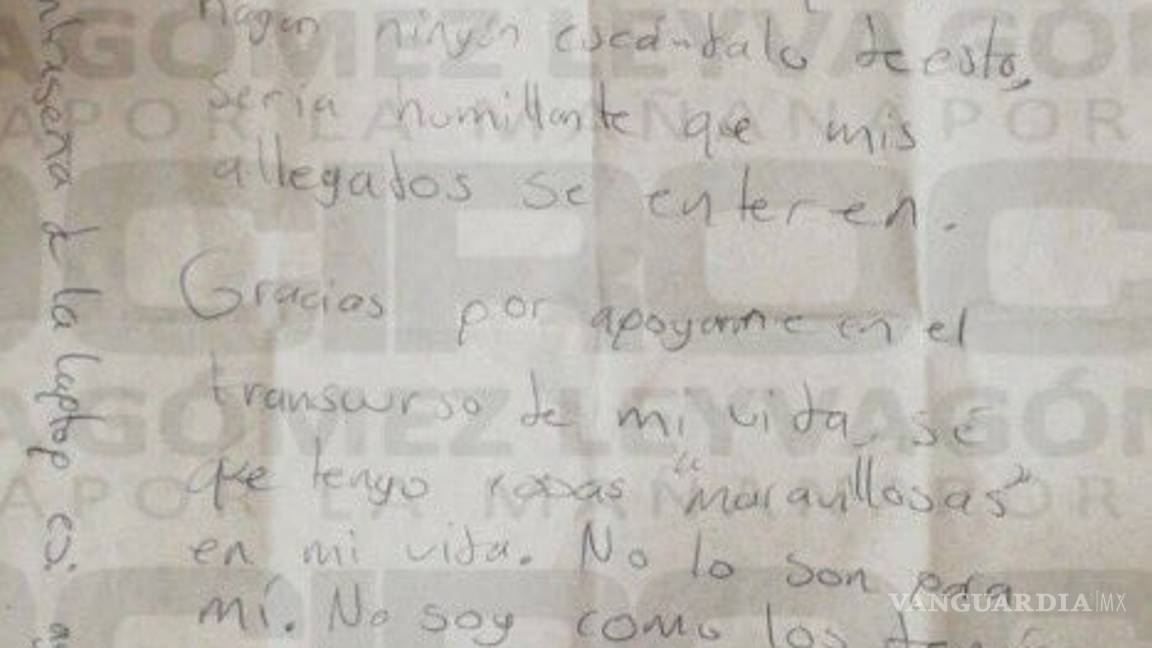 hagan ningún escándalo de esto,
sería humillante que mis
allegados se enteren.
Gracias por apoyarme en el
transcurso de mi vida, sé
que tengo cosas "maravillosas"
en mi vida. No lo son para
mí. No soy como los
contraseña d la laptop es:
GÓMEZ LEYVA
POR LA MAÑANA
VANGUARDIA|MX